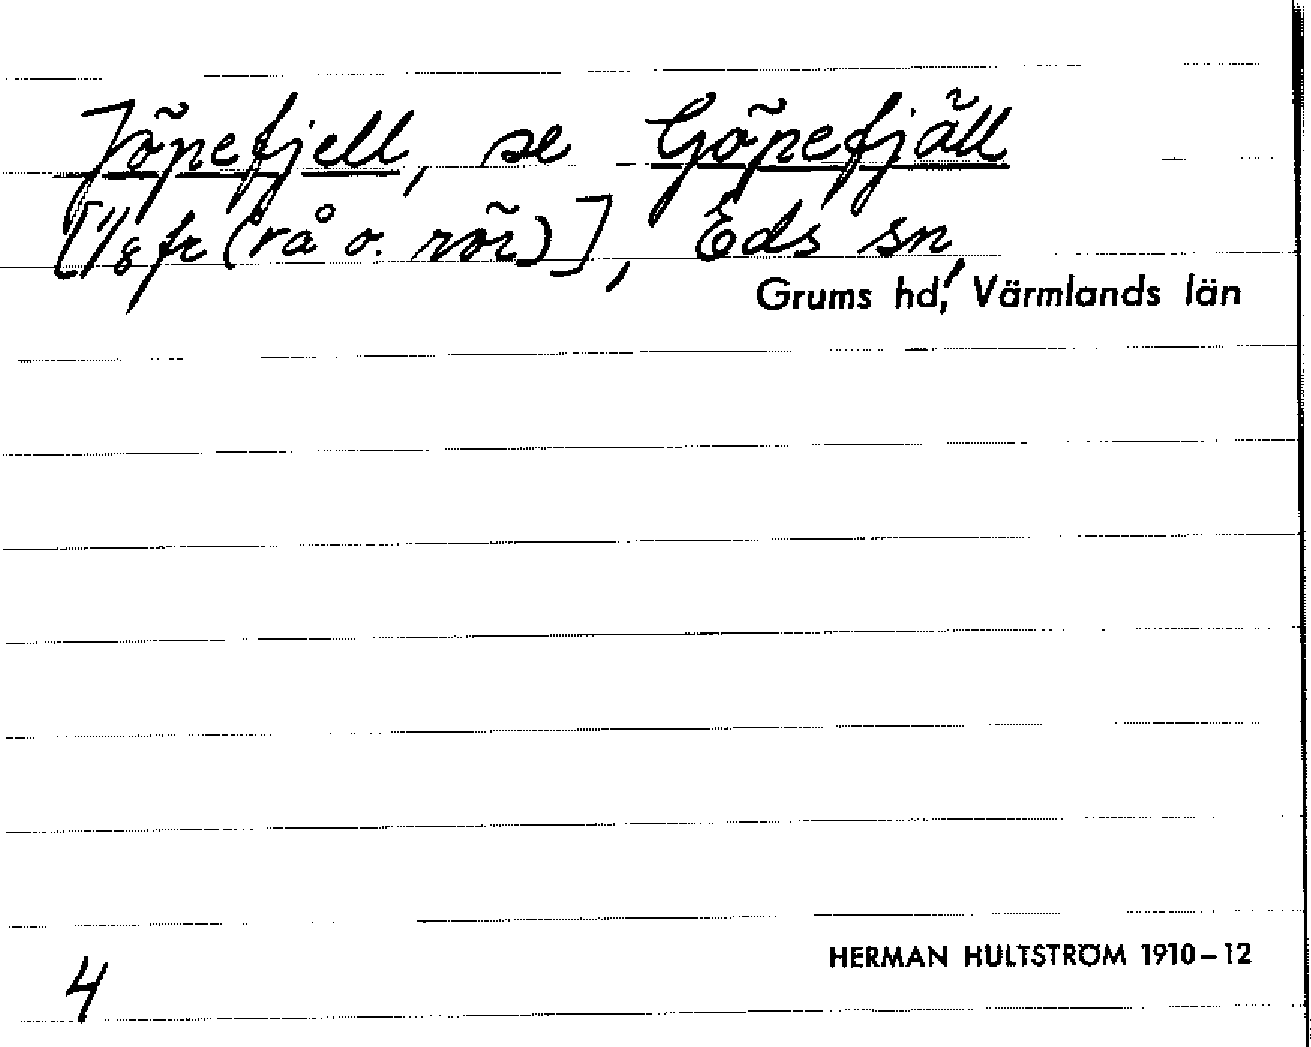 Jöpefjell, se Göpefjäll
[1/8 fr (rå o. rör)], Eds sn,
Grums hd, Värmlands län
4
HERMAN HULTSTRÖM 1910–12